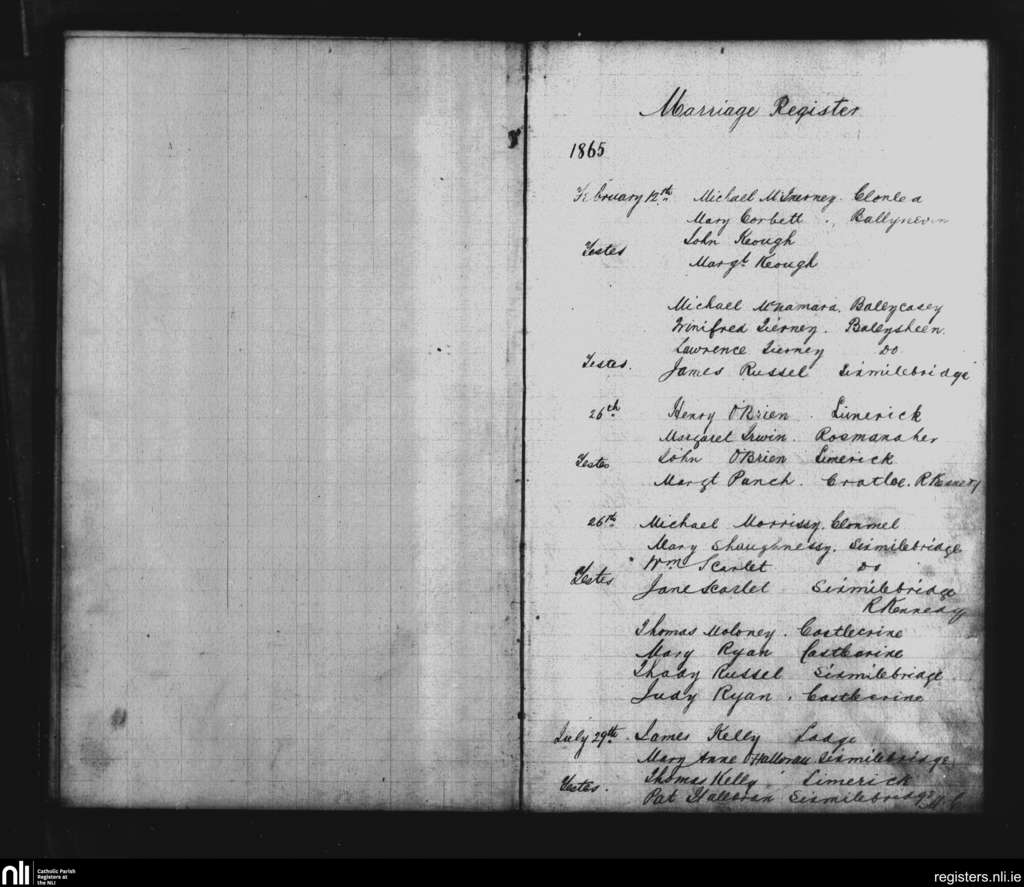 Marriage Register
1865
February 12th Michael McInerney. Clonlea
Mary Corbett . Ballynevin
Testes John Keough
Margt. Keough
Michael McNamara. Ballycasey
Winifred Tierney. Ballysheen
Lawrence Tierney Do
Testes. James Russel Sixmilebridge
26th Henry O'Brien . Limerick
Margaret Irwin. Rosmanaher
Testes John O'Brien Limerick
Margt Punch. Cratloe. R Kennedy
26th Michael Morrissy. Clonmel
Mary Shaughnessy. Sixmilebridge
Wm Scarlet Do
Testes Jane Scarlet Sixmilebridge
R Kennedy
Thomas Moloney. Castlecrine
Mary Ryan Castlecrine
Thady Russel Sixmilebridge
Judy Ryan . Castlecrine
July 29th. James Kelly Lodge
Mary Anne O'Halloran Sixmilebridge
Testes. Thomas Kelly Limerick
Pat Halloran Sixmilebridge
nli Catholic Parish
Registers at
the NLI
registers.nli.ie